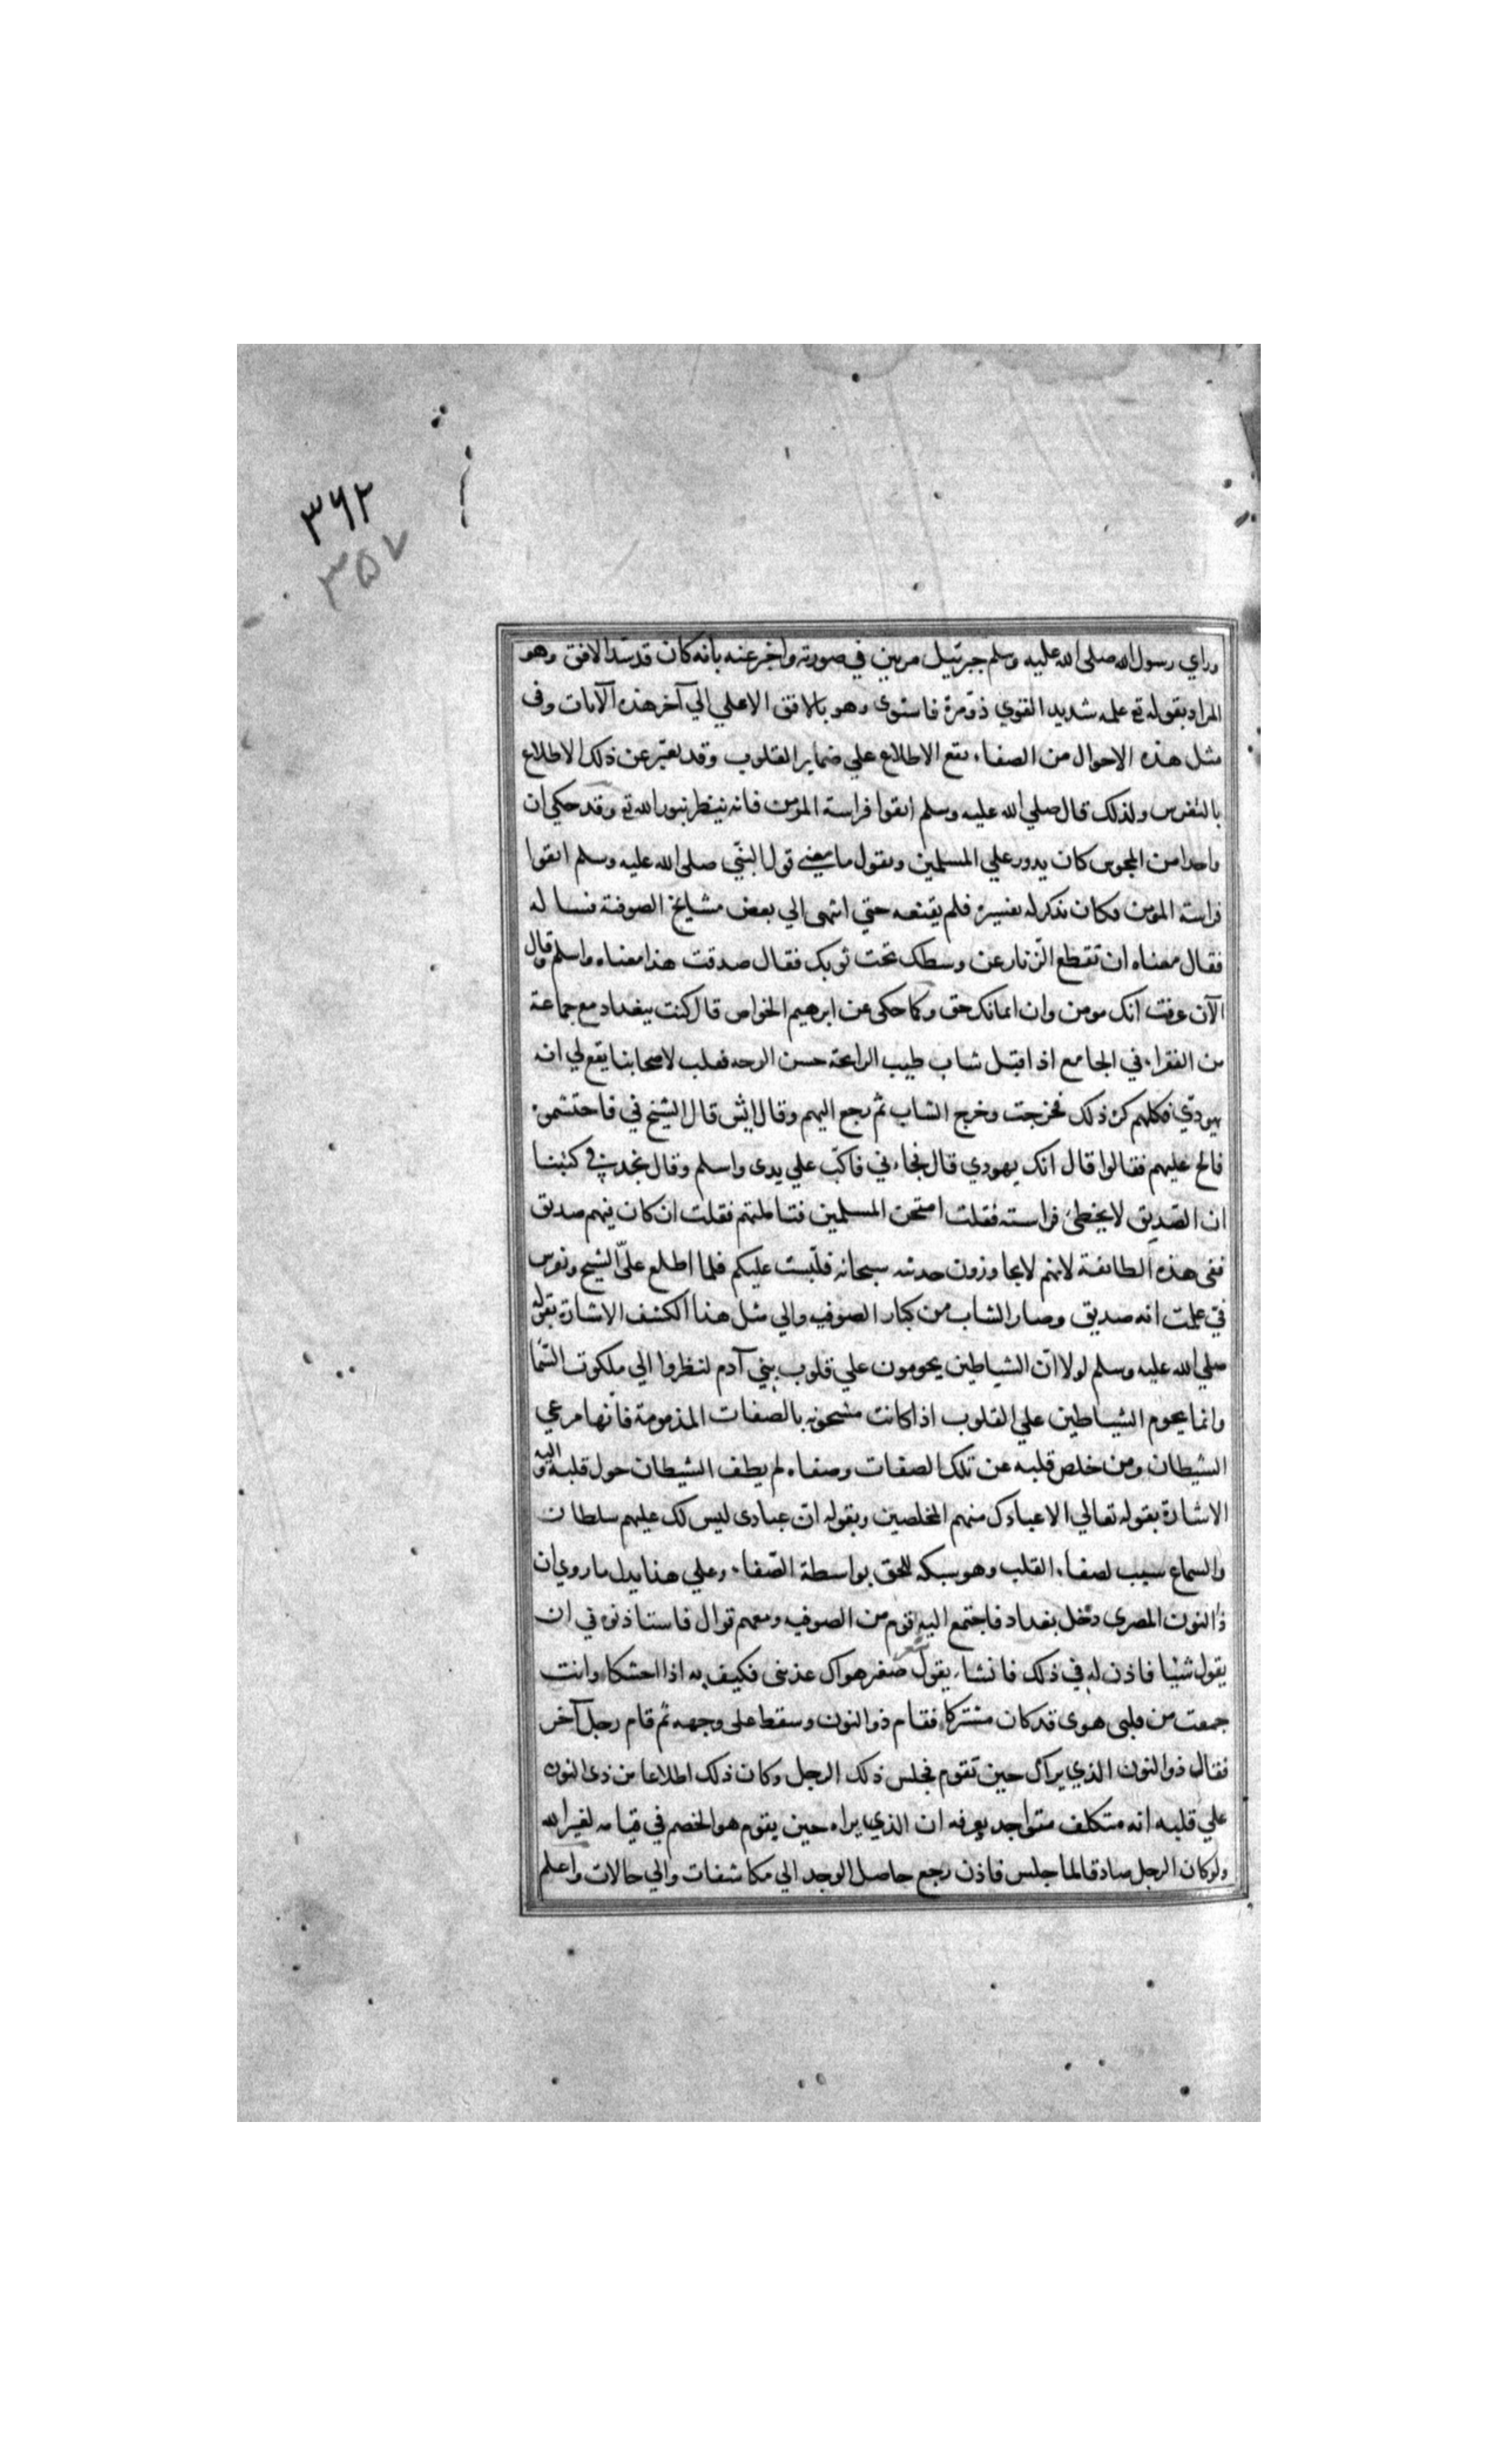 ٣٦٢
٣٥٧
وراي رسول الله صلى الله عليه وسلم جبرئيل مرتين في صورته واخبر عنه بانه كان قد سد الافق وهو
المراد بقوله تع علمه شديد القوي ذو مرة فاستوى وهو بالافق الاعلي الي آخر هذه الآيات وفى
مثل هذه الاحوال من الصفاء يقع الاطلاع علي ضماير القلوب وقد يعبّر عن ذلك الاطلاع
بالتفرس ولذلك قال صلي الله عليه وسلم اتقوا فراسة المؤمن فانه ينظر بنور الله تع وقد حكي ان
واحدا من المجوس كان يدور علي المسلمين ويقول ما معنى قول النبّي صلى الله عليه وسلم اتقوا
فراسة المؤمن فكان يذكر له تفسيره فلم يقنعه حتي انتهى الي بعض مشايخ الصوفية فساله
فقال معناه ان تقطع الزّنار عن وسطك تحت ثوبك فقال صدقت هذا معناه واسلم وقال
الآن عرفت انك مومن وان ايمانك حق وكما حكى عن ابرهيم الخواص قال كنت ببغداد مع جماعة
من الفقراء في الجامع اذ اقبل شاب طيب الرايحة حسن الوجه فقلت لاصحابنا يقع لي انه
يهودّي فكلهم كره ذلك فخرجت وخرج الشاب ثم رجع اليهم وقال ايش قال الشيخ في فاحتشموه
فالح عليهم فقالوا قال انك يهودي قال فجاءني فاكبّ علي يدى واسلم وقال نجد في كتبنا
ان الصّديق لا يخطئ فراسته فقلت امتحن المسلمين فتاملتهم فقلت ان كان فيهم صديق
ففى هذه الطائفة لانهم سبحانه فلبّست عليكم فلما اطلع علىّ الشيخ وتفرس
في علمت انه صديق وصار الشاب من كبار الصوفيه والي مثل هذا الكشف الاشارة بقوله
صلي الله عليه وسلم لولا انّ الشياطين يحومون علي قلوب بني آدم لنظروا الي ملكوت السّما
وانما يحوم الشياطين علي القلوب اذا كانت مشحونه بالصفات المذمومة فانها مرعي
الشيطان ومن خلص قلبه عن تلك الصفات وصفاه لم يطف الشيطان حول قلبه واليه
الاشارة بقوله تعالي الا عبادك منهم المخلصين وبقوله انّ عبادى ليس لك عليهم سلطان
والسماع سبب لصفاء القلب وهو سبكه للحق بواسطة الصّفاء وعلي هذا يدل ما روي ان
ذا النون المصرى دخل بغداد فاجتمع اليه قوم من الصوفيه ومعهم قوال فاستاذنوه في ان
يقول شيا فاذن له في ذلك فانشاء يقول شعر صغير هواك عذبنى فكيف به اذا احتنكا وانت
جمعت من قلبى هوى قد كان مشتركا فقام ذو النون وسقط على وجهه ثم قام رجل آخر
فقال ذو النون الذي يراك حين تقوم فجلس ذلك الرجل وكان ذلك اطلاعا من ذى النون
علي قلبه انه متكلف متواجد يعرفه ان الذي يراه حين يقوم هو الخصم في قيامه لغير الله
ولو كان الرجل صادقا لما جلس فاذن رجع حاصل الوجد الي مكاشفات والي حالات واعلم